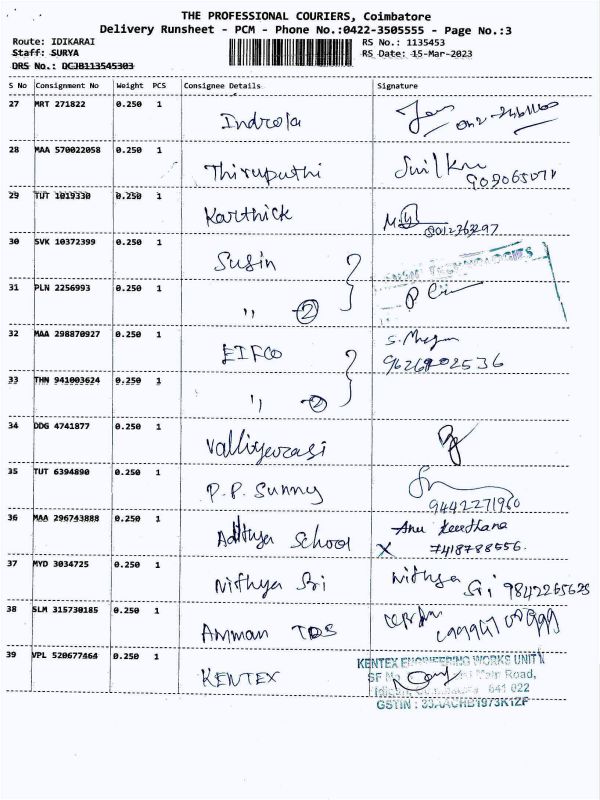 THE PROFESSIONAL COURIERS, Coimbatore
Delivery Runsheet - PCM - Phone No.:0422-3505555 - Page No.:3
Route: IDIKARAI RS No.: 1135453
Staff: SURYA RS Date: 15-Mar-2023
DRS No.: DCJB113545303
S No Consignment No Weight PCS Consignee Details Signature
27 MRT 271822 0.250 1 Indrola
28 MAA 570022058 0.250 1 Thiruputhi
29 TUT 1019330 0.250 1 Karthick
30 SVK 10372399 0.250 1 Susin
TECHNOLOGIES
31 PLN 2256993 0.250 1 " - 2
32 MAA 298870927 0.250 1 EIFCO
33 THN 941003624 0.250 1 " - 2
34 DDG 4741877 0.250 1
35 TUT 6394890 0.250 1 P.P. Sunny
9442271960
36 MAA 296743888 0.250 1 Adithya School Anu Keerthana
X 7418788556.
37 MYD 3034725 0.250 1 Nithya Sri Nithya Sri 9842265625
38 SLM 315730185 0.250 1 Amman TDS
39 VPL 520677464 0.250 1 KENTEX
KENTEX ENGINEERING WORKS UNIT
SF No Road,
641 022
GSTIN : 33AACHB1973K1ZF